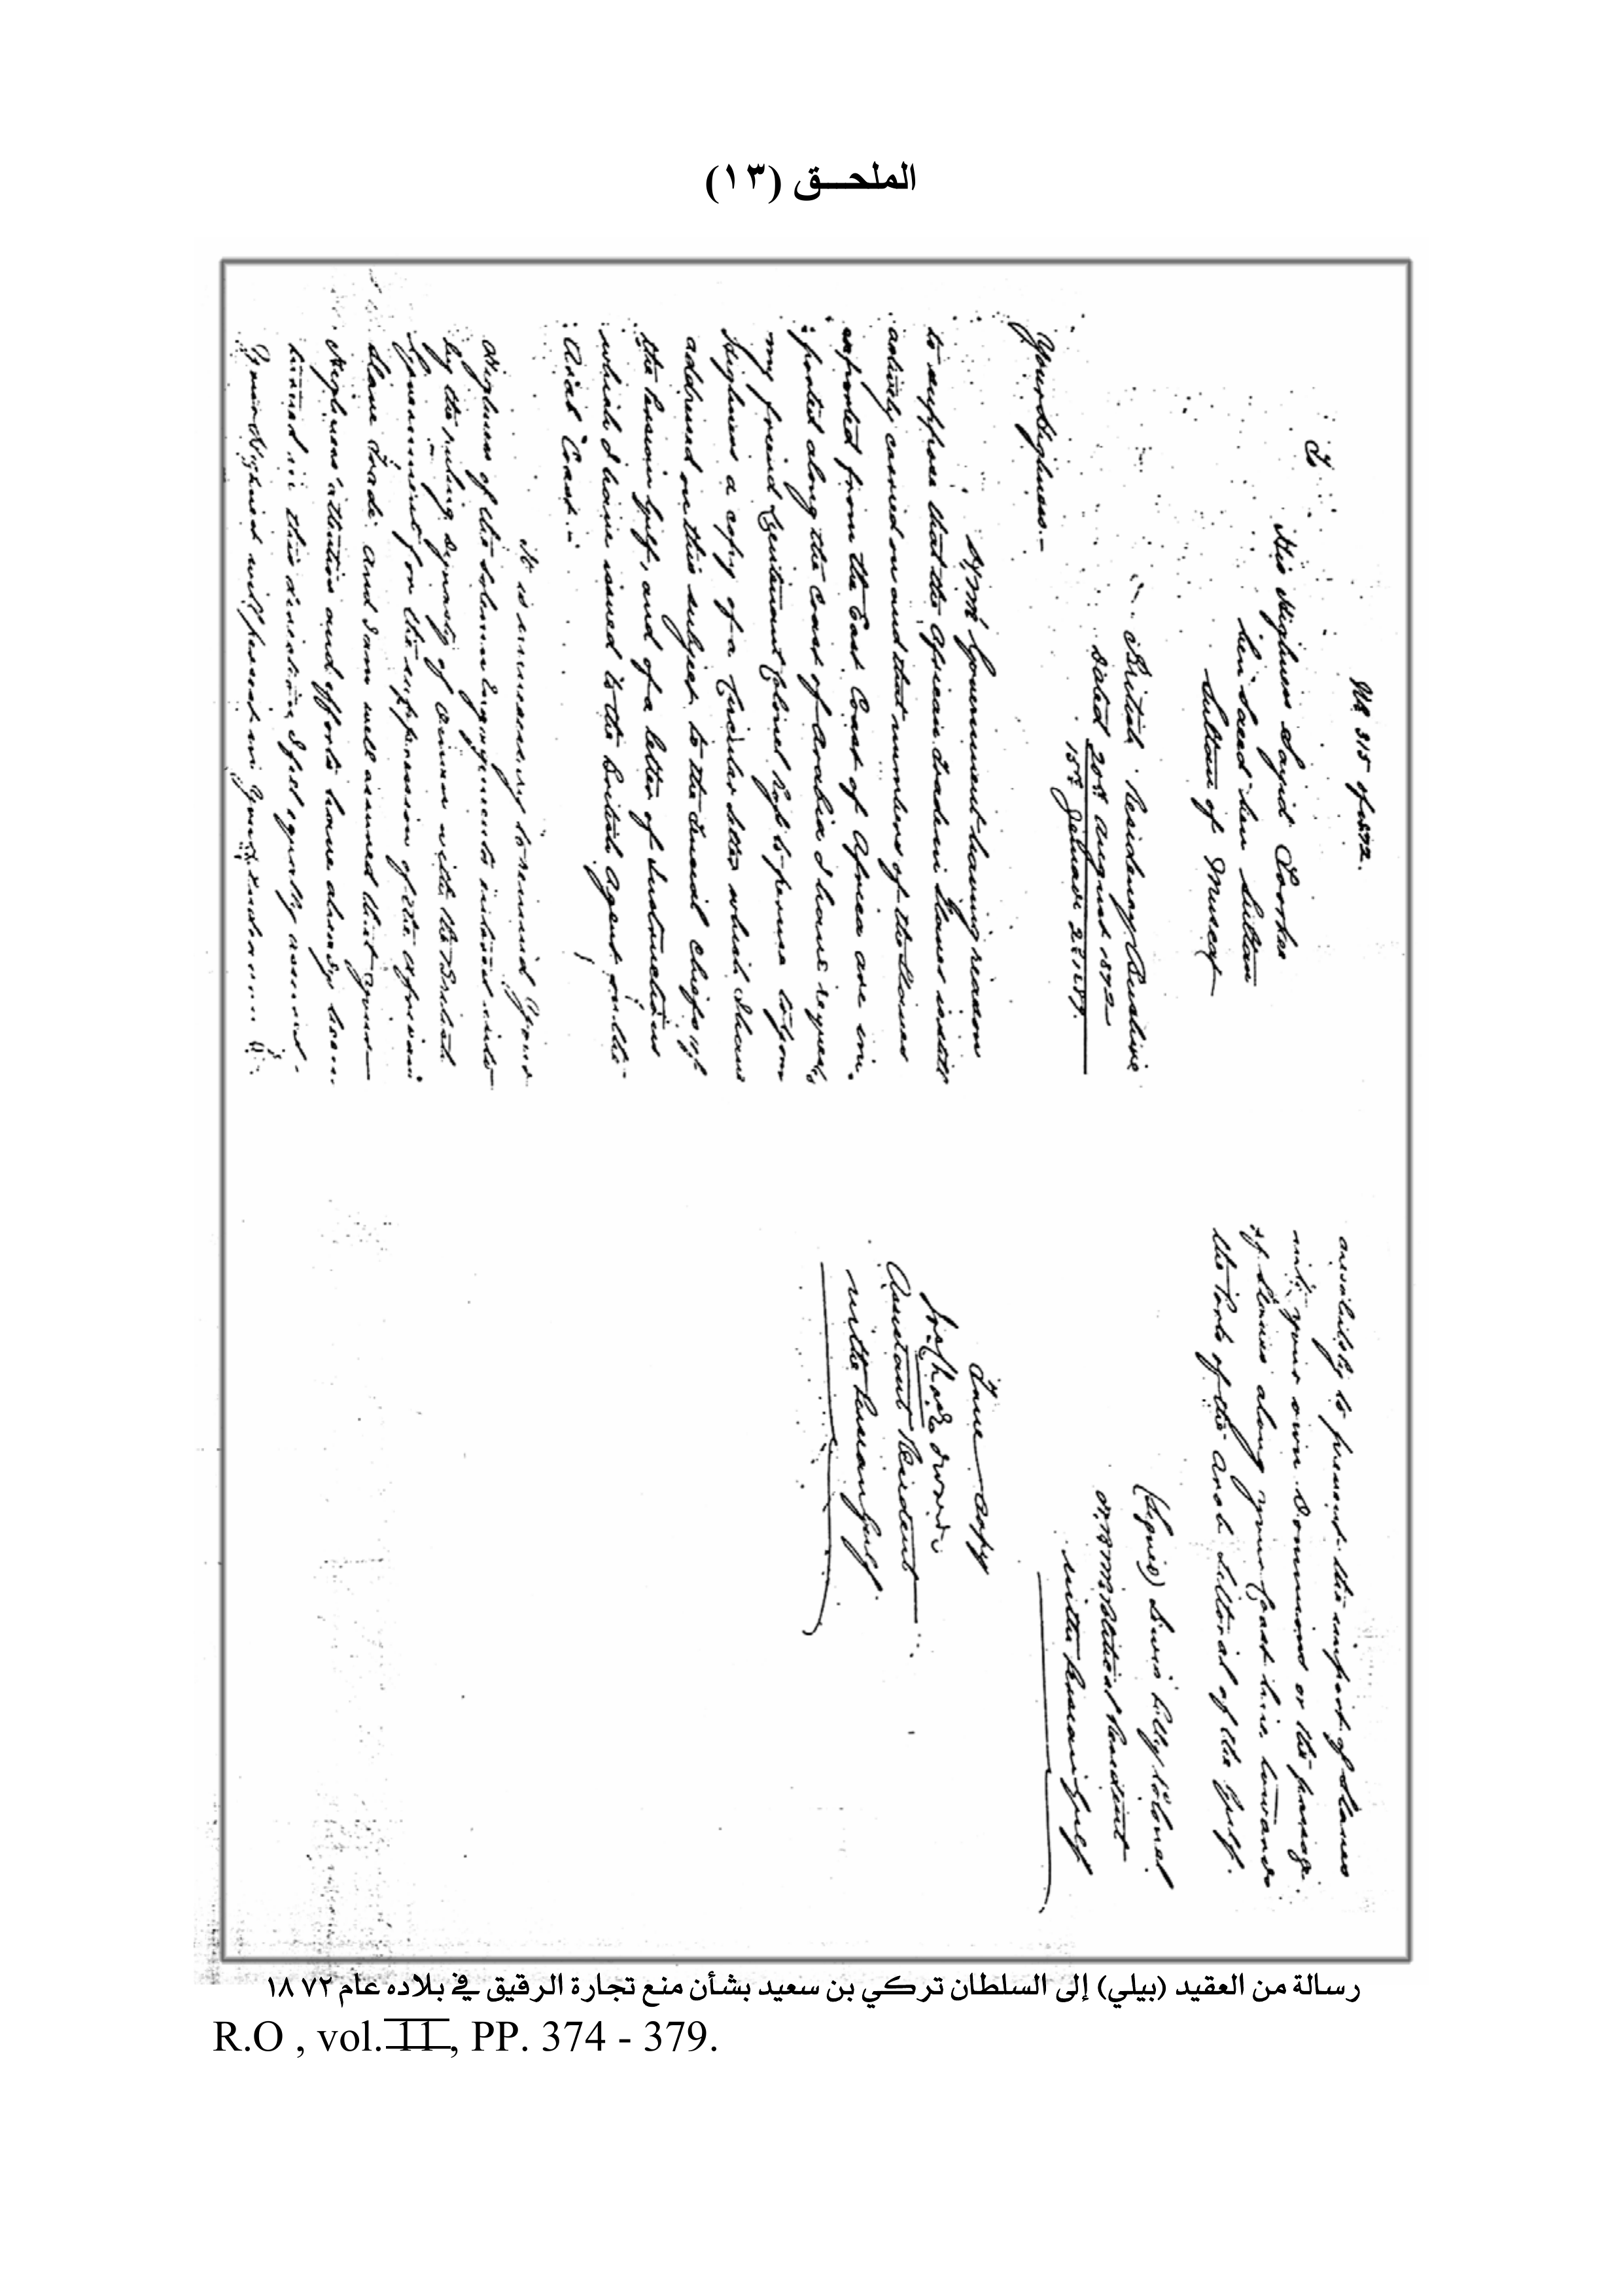 الملحـــق (١٣)
No 315 of 1872.
To
His Highness Sayid Toorkee
bin Saeed bin Sultan
Sultan of Muscat
British Residency Bushire
Dated 20th August 1872
15th
Your Highness.-
H.M's Government having reason
to suppose that the African trade in slaves is still
actively carried on and that numbers of the slaves
exported from the East Coast of Africa are im-
ported along the Coast of Arabia I have requested
my friend Lieutenant Colonel to peruse to Your
Highness a copy of a Circular letter which I have
addressed on this subject to the Chiefs of
the Persian Gulf, and of a letter of Instructions
which I have issued to the British Agent on the
Arab Coast.-
It is unnecessary to remind Your
Highness of the solemn Engagements entered into
by the ruling dynasty of Oman with the British
Government for the suppression of the African
Slave Trade. and I am well assured that Your
Highness' attention and efforts have already been
turned in this direction I feel equally assured
Your Highness will persist in Your
to prevent the import of Slaves
into your own Dominions or the passage
of Slaves along your Coast line towards
the Ports of the Arab Littoral of the Gulf.
(Signed) Lewis Pelly Colonel
H.B.M's Political Resident
in the Persian Gulf
True Copy
Assistant Resident
in the Persian Gulf.
رسالة من العقيد (بيلي) إلى السلطان تركي بن سعيد بشأن منع تجارة الرقيق في بلاده عام ١٨٧٢
R.O , vol. II, PP. 374 - 379.